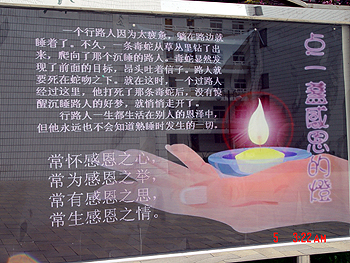 一个行路人因为太疲惫，躺在路边就
睡着了。不久，一条毒蛇从草丛里钻了出
来，爬向了那个沉睡的路人。毒蛇显然发
现了前面的目标，昂头吐着信子。路人就
要死在蛇吻之下。就在这时，一个过路人
经过这里，他打死了那条毒蛇后，没有惊
醒沉睡路人的好梦，就悄悄走开了。
行路人一生都生活在别人的恩泽中，
但他永远也不会知道熟睡时发生的一切。
点一盏感恩的燈
常怀感恩之心，
常为感恩之举，
常有感恩之思，
常生感恩之情。